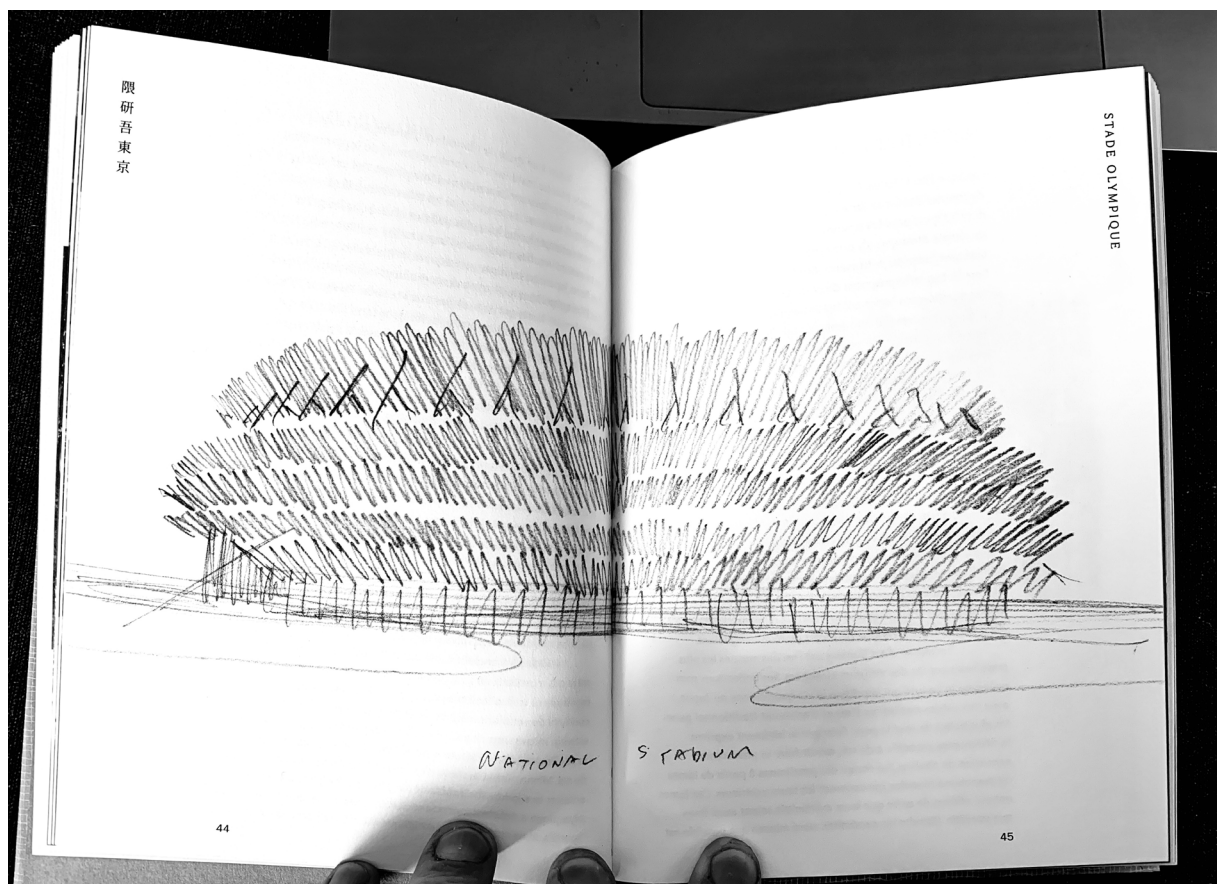 隈研吾東京
STADE OLYMPIQUE
NATIONAL STADIUM
44
45